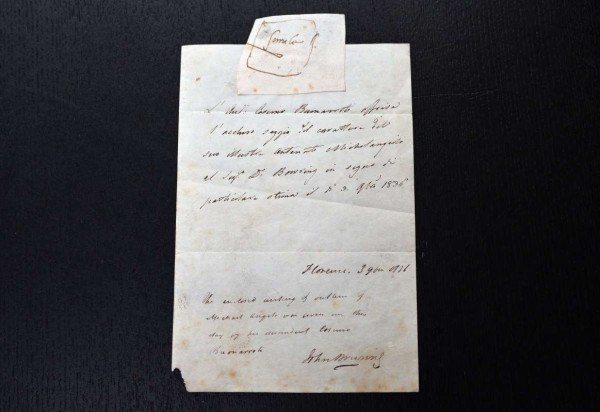 Simile
L' Cosimo Buonarroti offriva
l'accluso saggio del carattere del
suo Illustre antenato Michelangelo
al Sigr. D. Bowring in segno di
particolare stima il dì 3. 1836
Florence. 3
The enclosed writing & outline of
Michael Angelo was given me this
day by his descendant Cosimo
Buonarroti
John Bowring